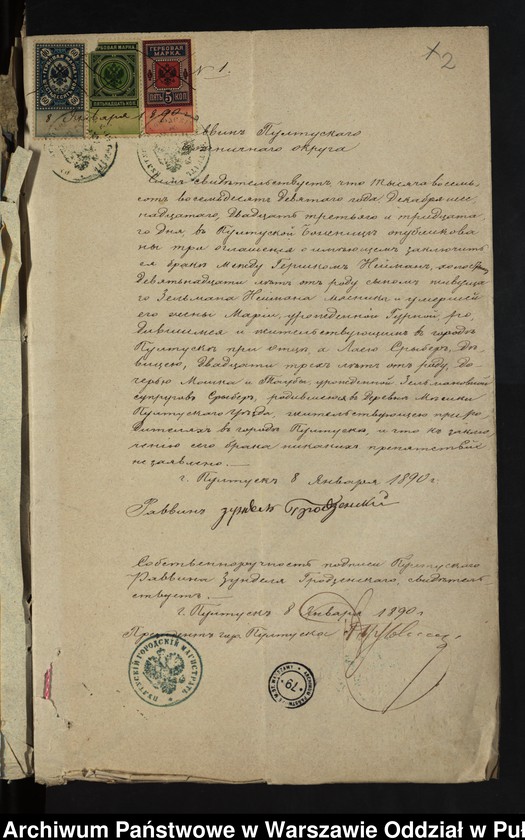 +2
ГЕРБОВАЯ МАРКА.
ПЯТЬ 5 КОП
ПЯТЬНАДЦАТЬ КОП.
№ 1.
8 Января 1890 г.
Раввинъ Пултускаго
Божничнаго округа
Симъ свидѣтельствуетъ, что тысяча восемь-
сотъ восемьдесятъ девятаго года, Декабря шес-
надцатаго, двадцать третьяго и тридцата-
го дня, въ Пултуской Божницѣ опубликова-
ны три оглашенія о имѣющемъ заключить-
ся бракѣ между Нейманъ, холос
девятьнадцати лѣтъ отъ роду, сыномъ живуща-
го Зельмана Неймана и умершей
его жены Маріи, урожденной ро-
дившимся и жительствующимъ въ городѣ
Пултускѣ при отцѣ, а Ласею Сребберъ, дѣ-
вицею, двадцати трехъ лѣтъ отъ роду, до-
черью Мошка и урожденной Зельмановичъ
супруговъ родившеюся въ деревнѣ
Пултускаго Уѣзда, жительствующею при ро-
дителяхъ въ городѣ Пултускѣ, и что къ заклю-
ченію сего брака никакихъ препятствій
не заявлено.
г. Пултускъ 8 Января 1890 г.
Раввинъ Зундель Гродзенскій
Собственноручность подписи Пултускаго
Раввина Зунделя Гродзенскаго, свидѣтель-
ствуетъ.
г. Пултускъ 8 Января 1890 г.
Президентъ гор. Пултуска
ПУЛТУСКІЙ ГОРОДСКІЙ МАГИСТРАТЪ
79
Archiwum Państwowe w Warszawie Oddział w Puł